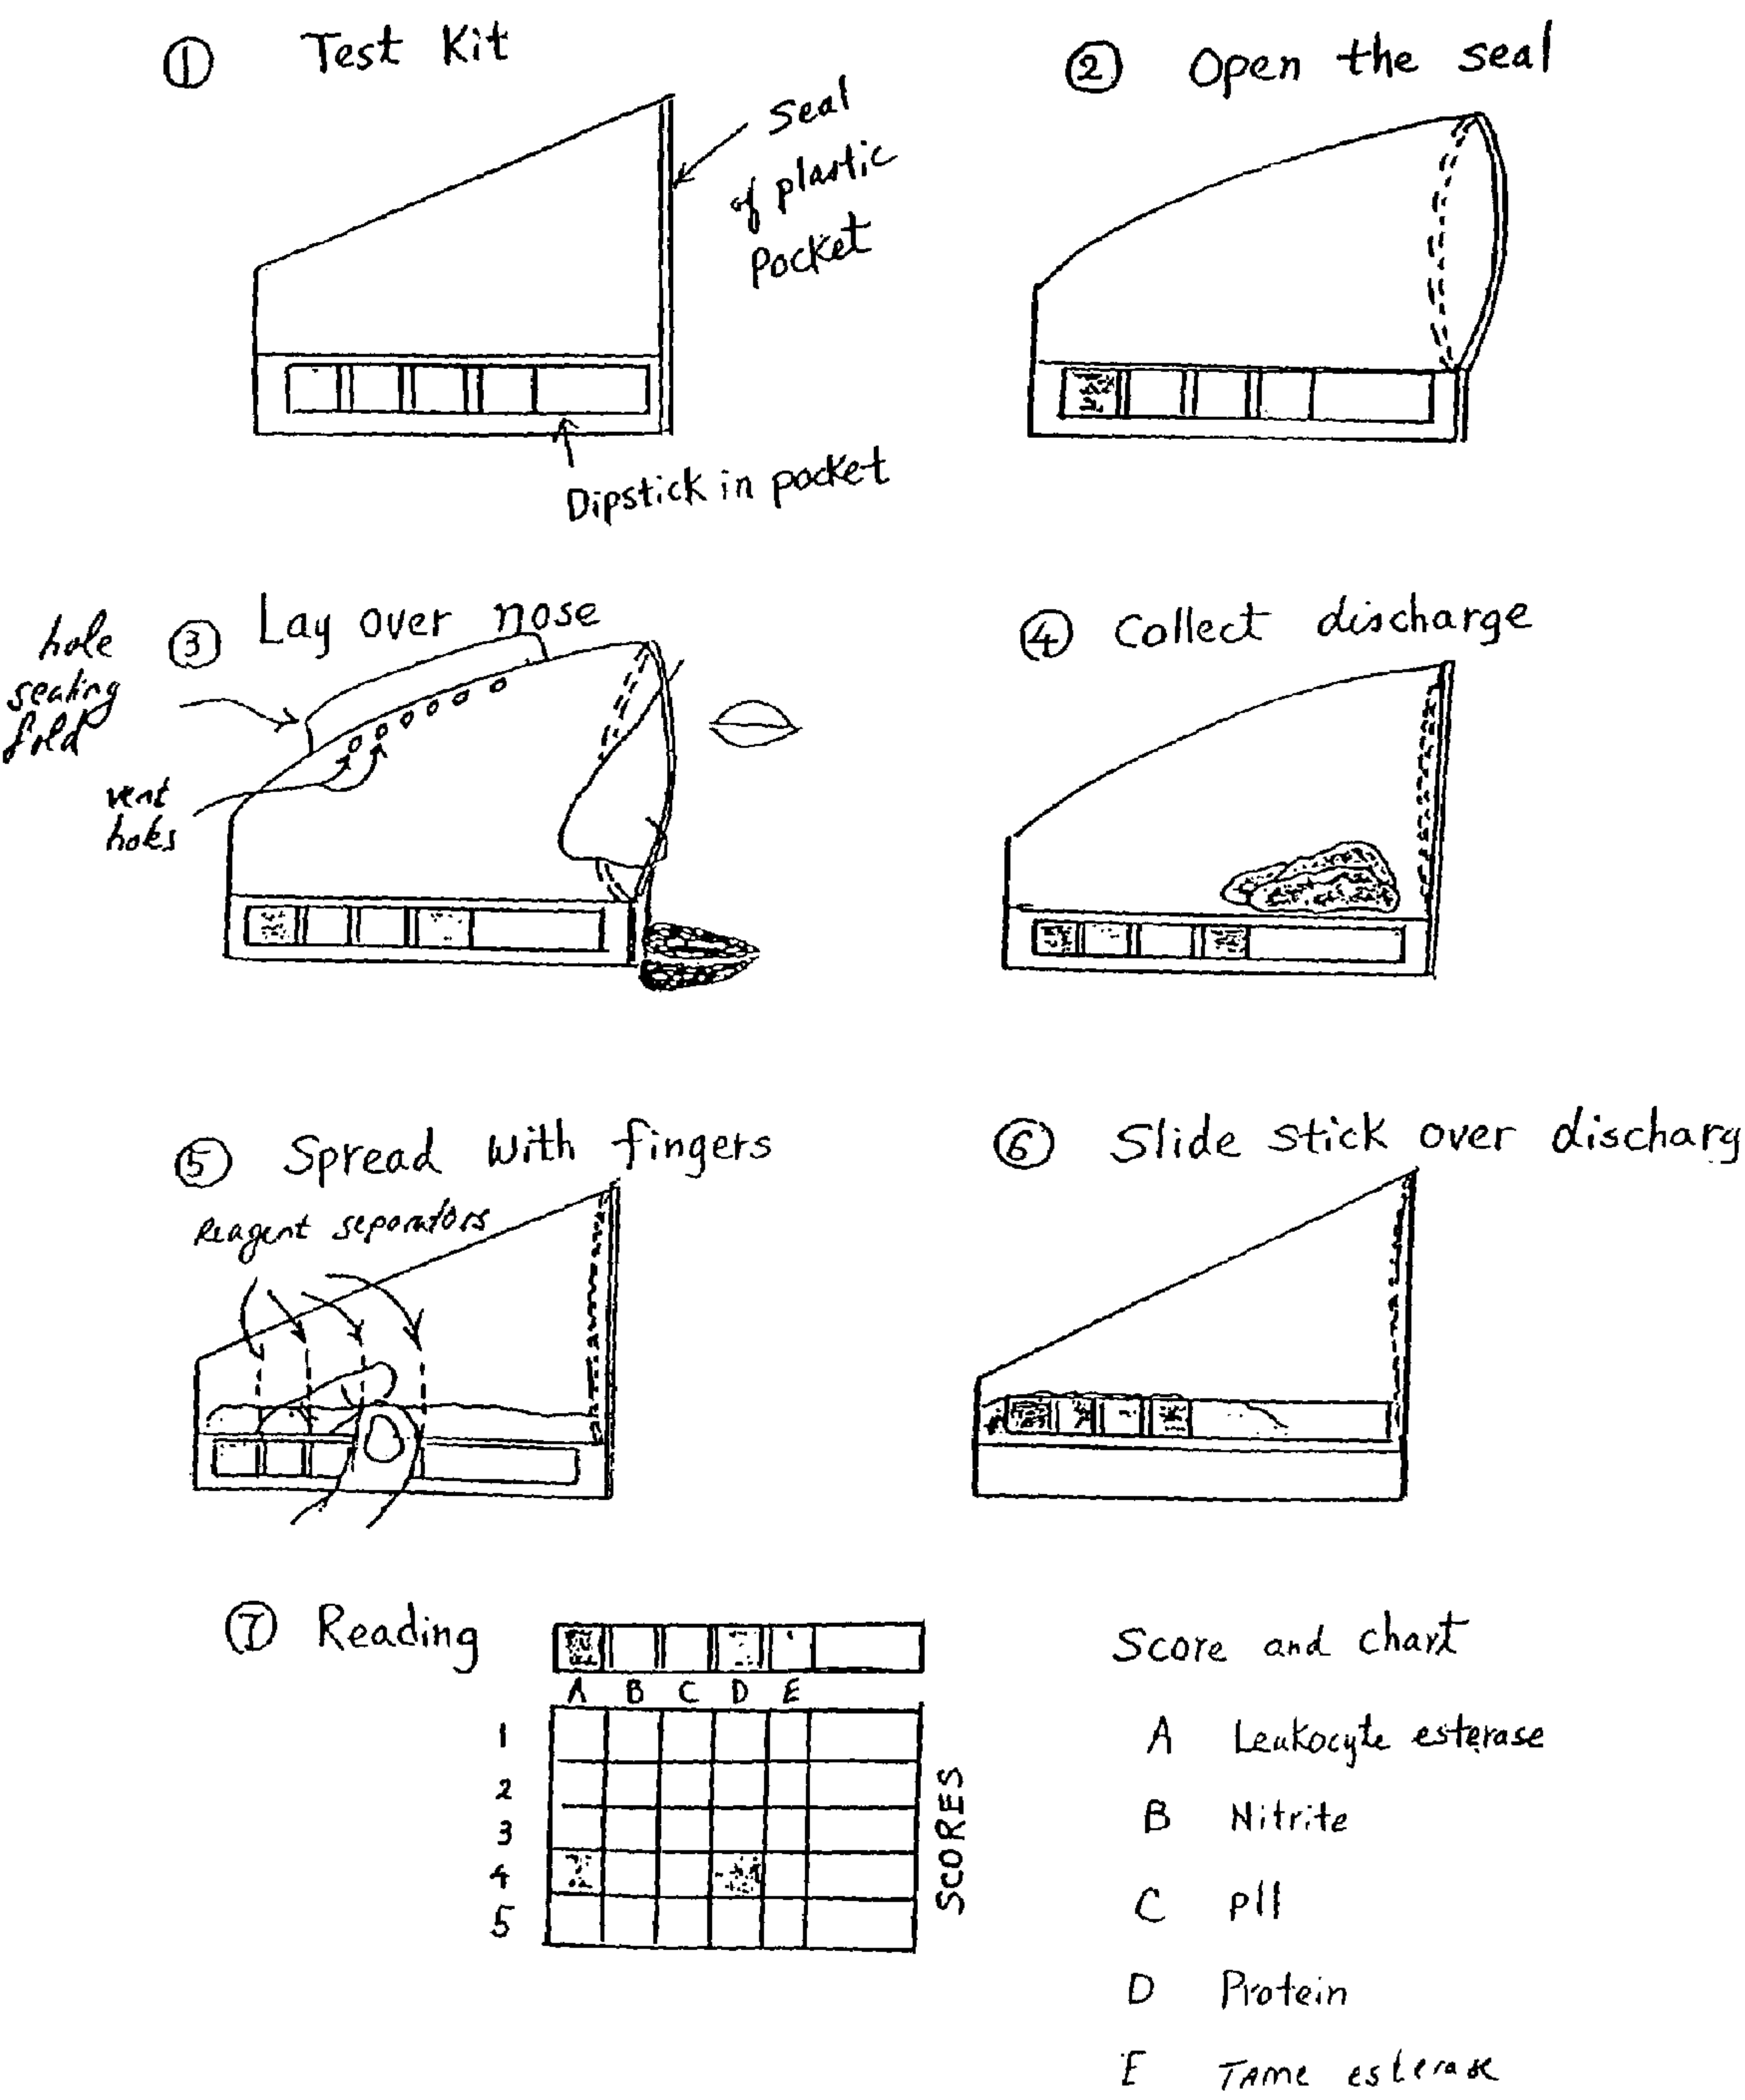 ① Test Kit
seal
of plastic
pocket
Dipstick in pocket
② Open the seal
③ Lay over nose
hole
sealing
fold
vent
holes
④ Collect discharge
⑤ Spread with fingers
Reagent separators
⑥ Slide stick over discharg
⑦ Reading
A B C D E
1
2
3
4
5
SCORES
Score and chart
A Leukocyte esterase
B Nitrite
C pH
D Protein
E Tame esterase